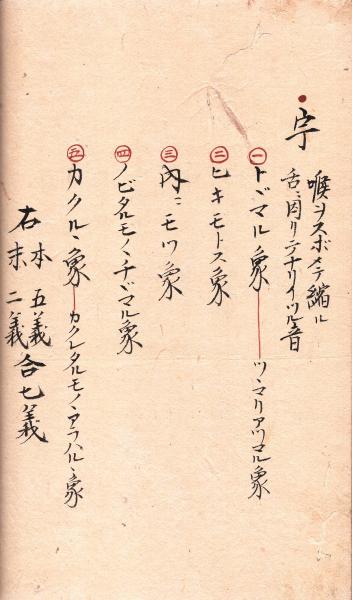 宇
喉ヲスボメテ縮ル
舌ニ因リテナリイヅル音
一 トドマル象 ツヽマリアツマル象
二 ヒキモトス象
三 内ニモツ象
四 ノビタルモノヽチヾマル象
五 カクルヽ象 カクレタルモノヽアラハルヽ象
右 本五義 末二義 合七義